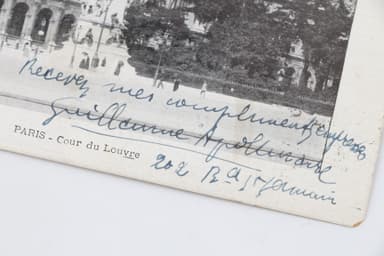 Recevez mes compliments empressés
Guillaume Apollinaire
PARIS - Cour du Louvre
202 Bd St Germain